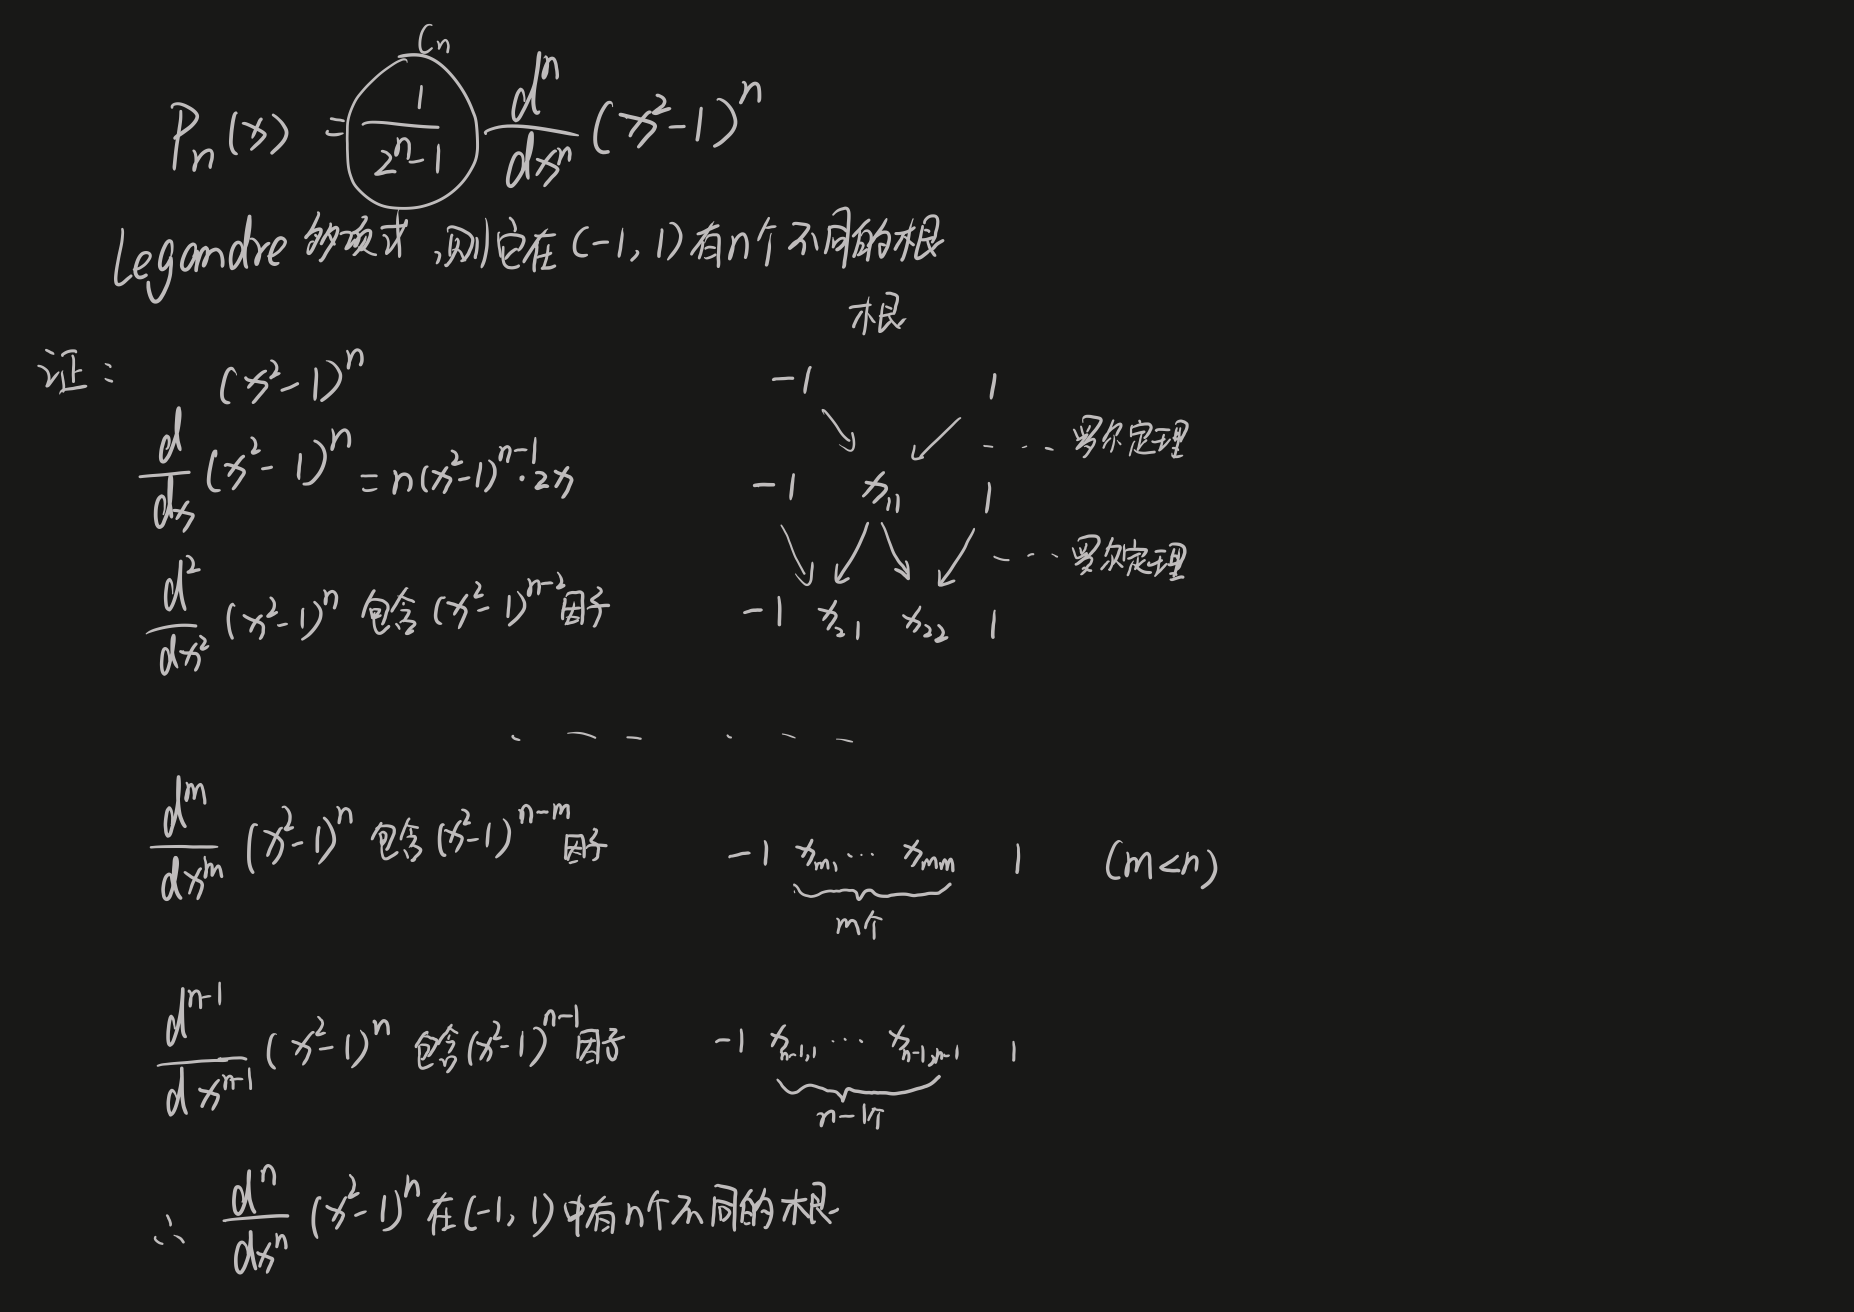 C_n
P_n(x) = \frac{1}{2^n-1} \frac{d^n}{dx^n} (x^2-1)^n
Legandre 多项式, 则它在 (-1, 1) 有n个不同的根
根
证: (x^2-1)^n -1 1
\frac{d}{dx} (x^2-1)^n = n(x^2-1)^{n-1} \cdot 2x -1 x_{11} 1 ... 罗尔定理
\frac{d^2}{dx^2} (x^2-1)^n 包含 (x^2-1)^{n-2} 因子 -1 x_{21} x_{22} 1 ... 罗尔定理
... ...
\frac{d^m}{dx^m} (x^2-1)^n 包含 (x^2-1)^{n-m} 因子 -1 x_{m1} ... x_{mm} 1 (m<n)
m个
\frac{d^{n-1}}{dx^{n-1}} (x^2-1)^n 包含 (x^2-1)^{n-1} 因子 -1 x_{n-1,1} ... x_{n-1,n-1} 1
n-1个
∴ \frac{d^n}{dx^n} (x^2-1)^n 在(-1, 1)中有n个不同的根